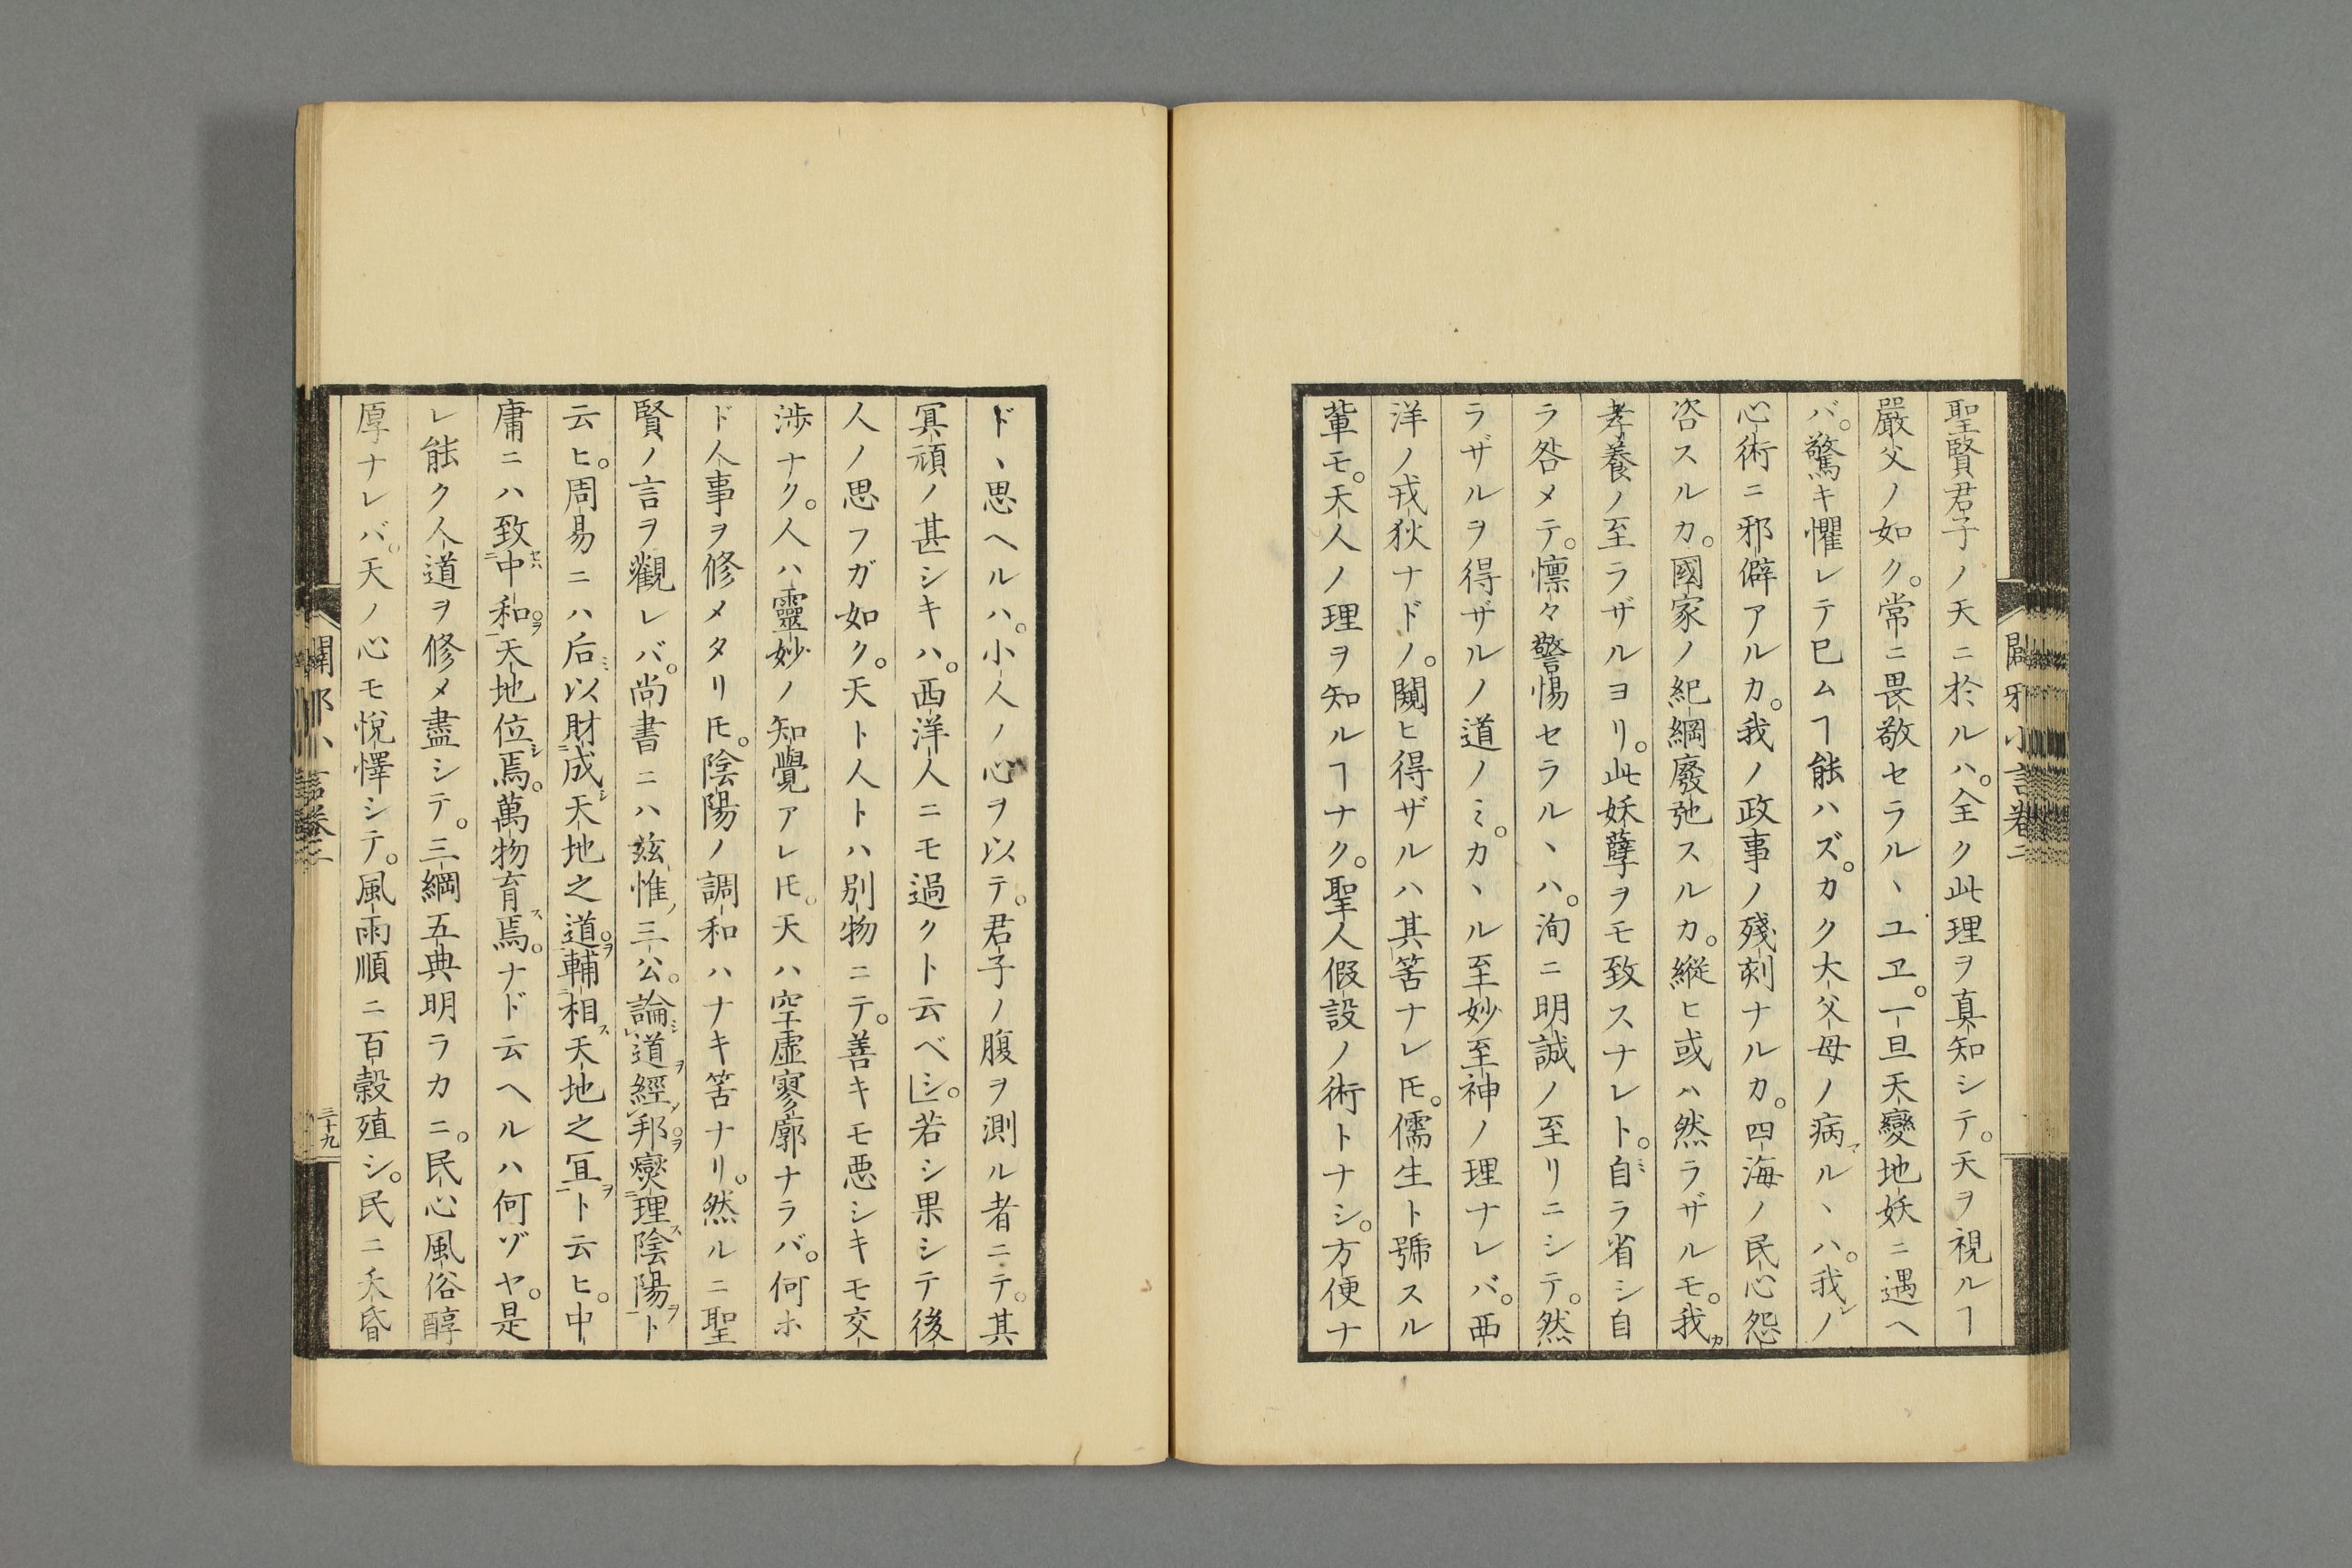 聖賢君子ノ天ニ於ルハ。全ク此理ヲ真知シテ。天ヲ視ルヿ
嚴父ノ如ク。常ニ畏敬セラルヽユヱ。一旦天變地妖ニ遇ヘ
バ。驚キ懼レテ已ムヿ能ハズ。カク大父母ノ病マルヽハ。我レノ
心術ニ邪僻アルカ。我ノ政事ノ殘刻ナルカ。四海ノ民心怨
咨スルカ。國家ノ紀綱廢弛スルカ。縱ヒ或ハ然ラザルモ。我カ
孝養ノ至ラザルヨリ。此妖孽ヲモ致スナレト。自ミラ省シ自
ラ咎メテ。懍々警惕セラルヽハ。洵ニ明誠ノ至リニシテ。然
ラザルヲ得ザルノ道ノミ。カヽル至妙至神ノ理ナレバ。西
洋ノ戎狄ナドノ。闚ヒ得ザルハ其筈ナレ𪜈。儒生ト號スル
輩モ。天人ノ理ヲ知ルヿナク。聖人假設ノ術トナシ。方便ナ
闢邪小言卷二
ドヽ思ヘルハ。小人ノ心ヲ以テ。君子ノ腹ヲ測ル者ニテ。其
冥頑ノ甚シキハ。西洋人ニモ過クト云ベシ。」若シ果シテ後
人ノ思フガ如ク。天ト人トハ別物ニテ。善キモ惡シキモ交
渉ナク。人ハ靈妙ノ知覺アレ𪜈。天ハ空虛寥廓ナラバ。何ホ
ド人事ヲ修メタリ𪜈。陰陽ノ調和ハナキ筈ナリ。然ルニ聖
賢ノ言ヲ觀レバ。尚書ニハ茲惟ノ三公。論シ道ヲ經ノ邦。ヲ燮理ス陰陽ヲト
云ヒ。周易ニハ后ミ以財成シ天地之道。ヲ輔相ス天地之宜ヲト云ヒ。中
庸ニハ致セハ中和。ヲ天地位シ焉。萬物育ス焉。ナド云ヘルハ何ゾヤ。是
レ能ク人道ヲ修メ盡シテ。三綱五典明ラカニ。民心風俗醇
厚ナレバ。天ノ心モ悅懌シテ。風雨順ニ百穀殖シ。民ニ夭昏
闢邪小言卷二
三十九